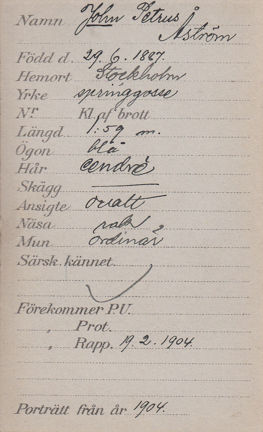 Namn John Petrus
Åström
Född d. 29. 6. 1887.
Hemort Stockholm
Yrke springgosse
Nr Kl. af brott
Längd 1:59 m.
Ögon blå
Hår cendré
Skägg —
Ansigte ovalt
Näsa rak
Mun ordinär
Särsk. kännet.
Förekommer P.U.
" Prot.
" Rapp. 19. 2. 1904.
Porträtt från år 1904.